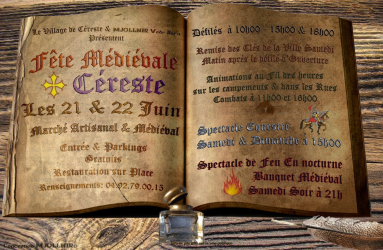 Le Village de Céreste &
Présentent
Fête Médiévale
Céreste
Les 21 & 22 Juin
Marché Artisanal & Médiéval
Entrée & Parkings
Gratuits
Restauration sur Place
Renseignements: 04.92.79.00.15
Défilés à 10h00 15h00 & 18h00
Remise des Clés de la Ville Samedi
Matin après le défilé d'Ouverture
Animations au Fil des heures
sur les campements & dans les Rues
Combats à 11h00 et 16h00
Spectacle Equestre
Samedi & Dimanche à 15h00
Spectacle de Feu En nocturne
Banquet Médiéval
Samedi Soir à 21h